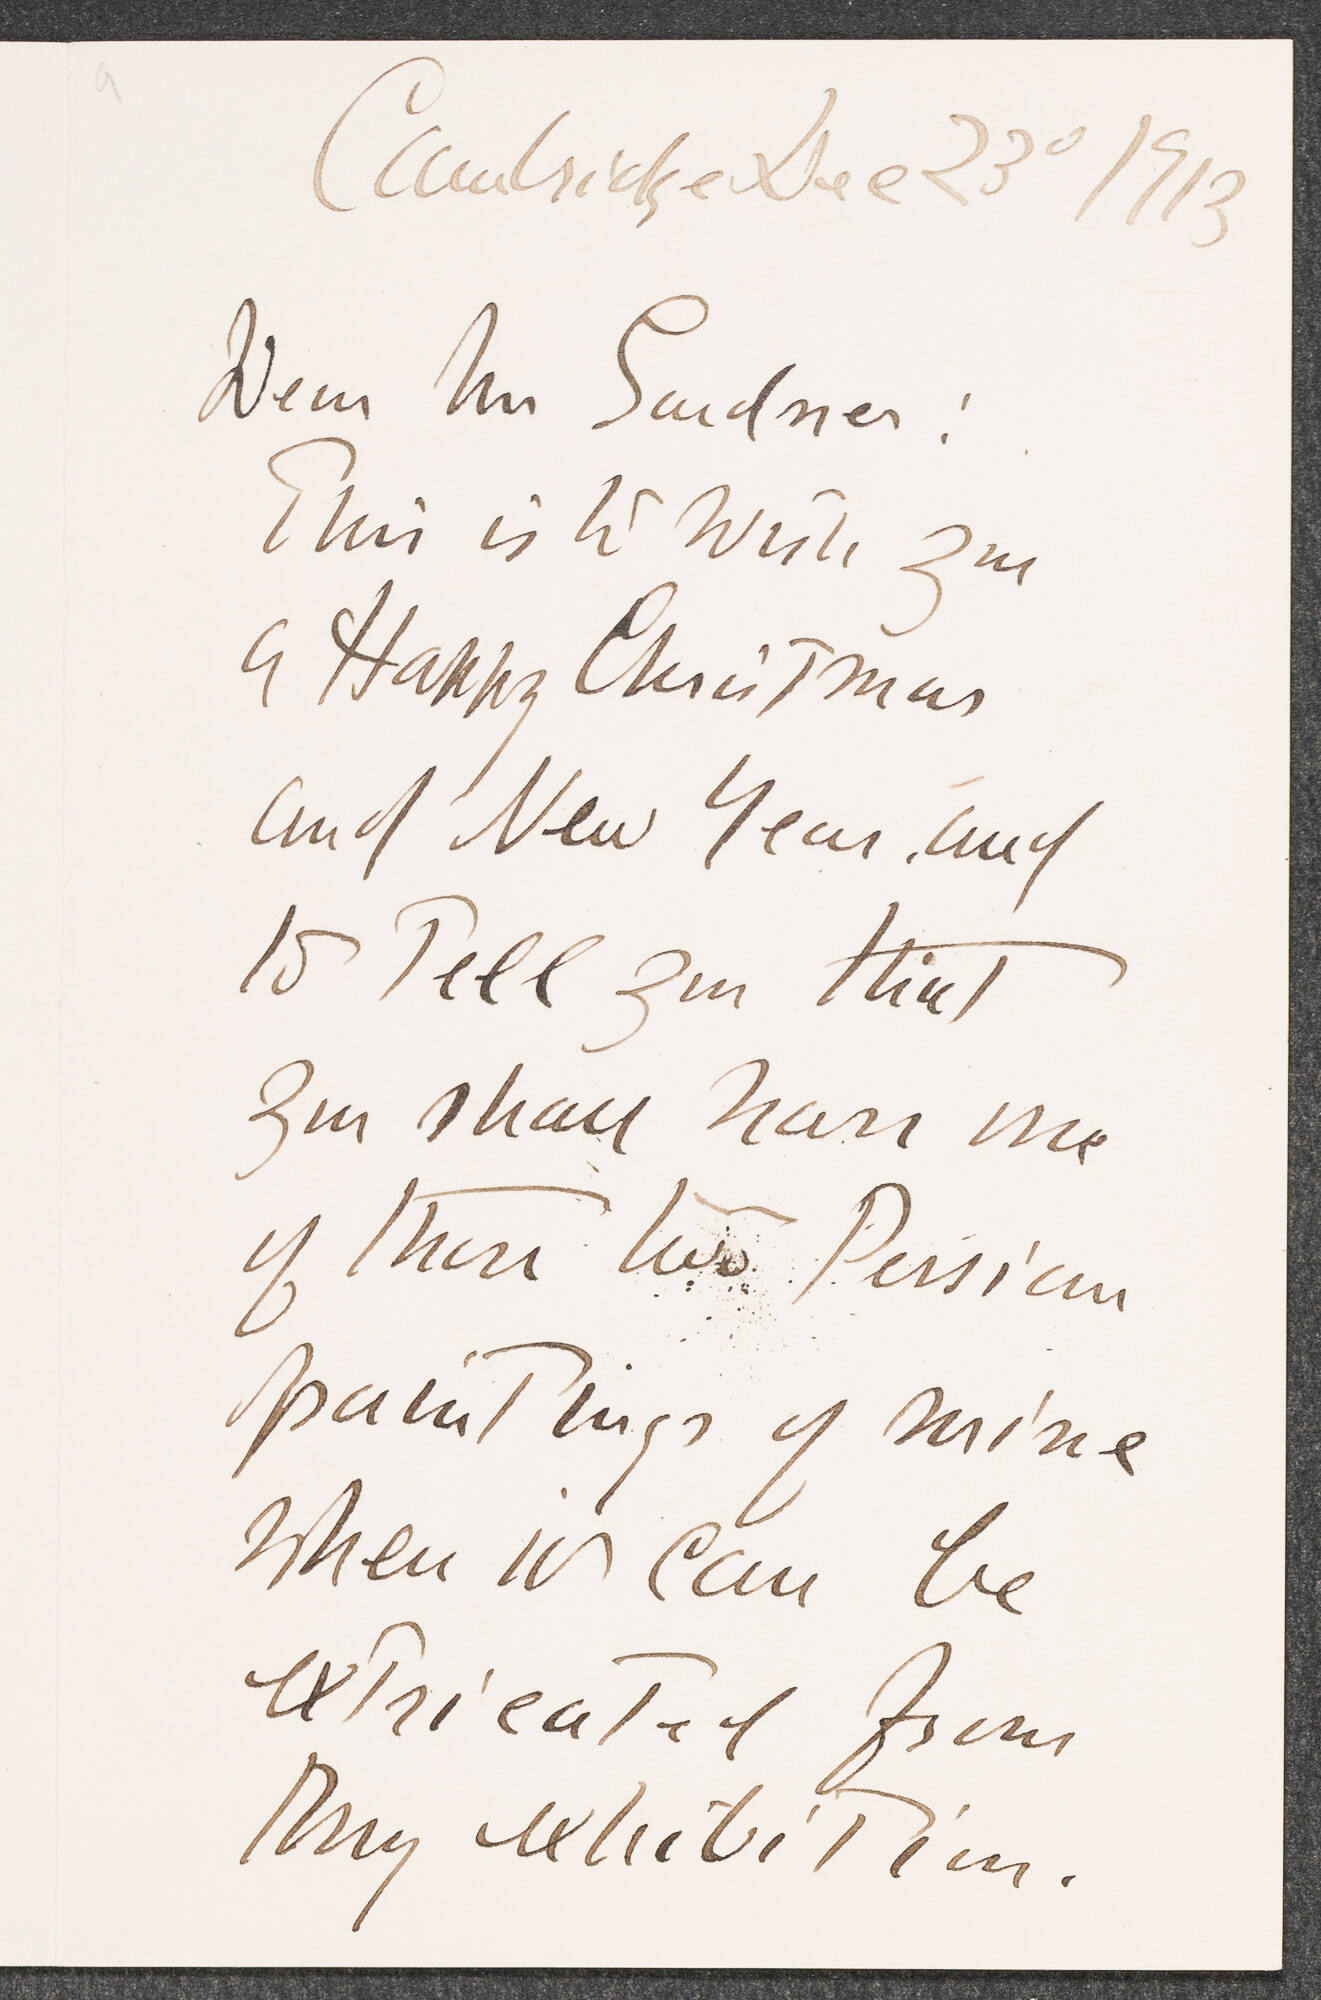 Cambridge Dec 23° 1913
Dear Mrs Gardner:
This is to wish you
a Happy Christmas
and New Year, and
to tell you that
you shall have one
of those two Persian
paintings of mine
when it can be
extricated from
my exhibition.